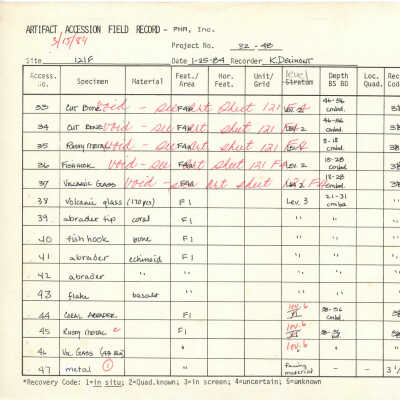 ARTIFACT ACCESSION FIELD RECORD - PHR, Inc.
3/15/84
Project No. 82-48
Site 121F Date 1-25-84 Recorder K. Dermont
Access. No. Specimen Material Feat./ Area Hor. Feat. Unit/ Grid Level Stratum Depth BS BD Loc. Quad. Rec Cod
33 CUT BONE void - see Art sheet 121 F4 46-56 cmbd.
34 CUT BONE void - see Art sheet 121 F4 46-56 cmbd.
35 Rusty metal void - see Art sheet 121 F4 8-18 cmbd.
36 Fishhook void - see Art sheet 121 F4 Lev. 2 18-28 cmbd.
37 Volcanic Glass void - see Art sheet 121 F4 18-28 cmbd.
38 Volcanic glass (170 pcs) F1 Lev 3 21-31 cmbd.
39. abrader tip coral F1 " "
40 fish hook bone F1 " "
41 abrader echinoid F1 " "
42 abrader " " " "
43 flake basalt " " "
44 CORAL ABRADER F1 lev. 6 cmbd.
45 Rusty metal F1 lev. 6 bd.
46 Vol. Glass " lev. 6 "
47 metal 1 " facing material - - 3
*Recovery Code: 1=in situ; 2=Quad.known; 3=in screen; 4=uncertain; 5=unknown